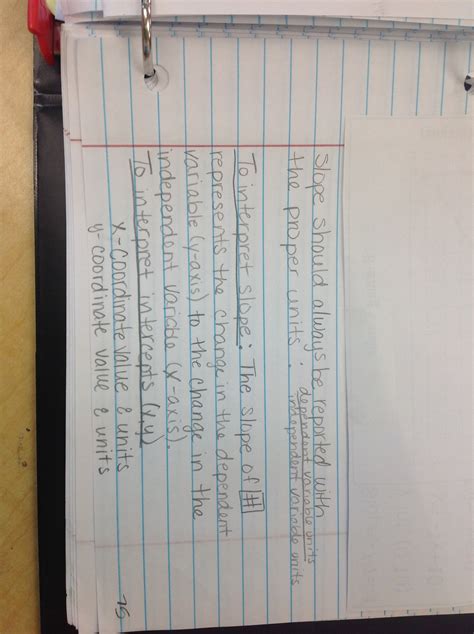 Slope should always be reported with
the proper units: dependent variable units
independent variable units
To interpret slope: The slope of #
represents the change in the dependent
variable (y-axis) to the change in the
independent variable (x-axis).
To interpret intercepts (x,y)
x-coordinate value & units
y-coordinate value & units